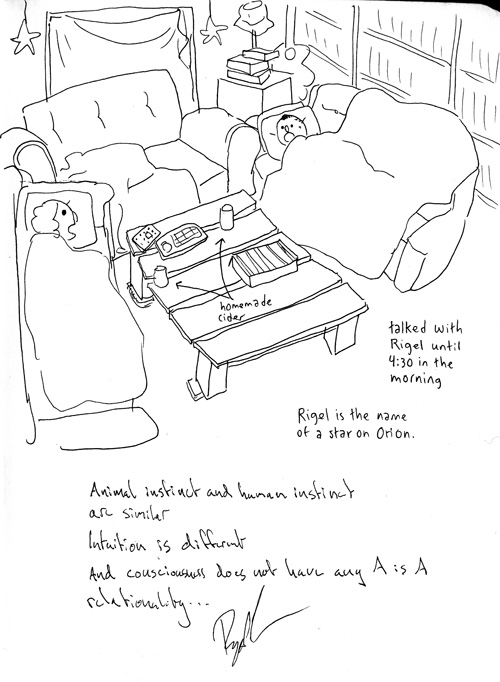 homemade
cider
talked with
Rigel until
4:30 in the
morning
Rigel is the name
of a star on Orion.
Animal instinct and human instinct
are similar
Intuition is different
And consciousness does not have any A is A
relationality...